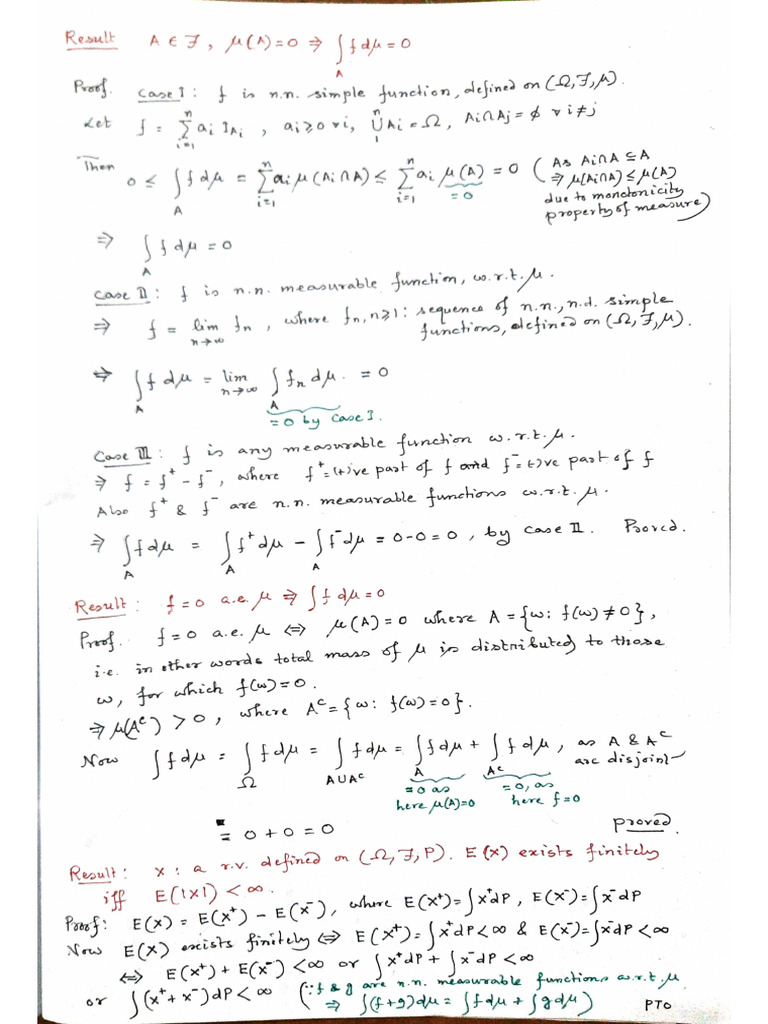 Result A ∈ 𝓕, μ(A)=0 ⇒ ∫_A f dμ = 0
Proof. Case I: f is n.n. simple function, defined on (Ω, 𝓕, μ).
Let f = Σ_{i=1}^n a_i I_{A_i}, a_i ≥ 0 ∀ i, ∪_1^n A_i = Ω, A_i∩A_j = ϕ ∀ i≠j
Then 0 ≤ ∫_A f dμ = Σ_{i=1}^n a_i μ(A_i∩A) ≤ Σ_{i=1}^n a_i μ(A) = 0 (As A_i∩A ⊆ A
= 0
⇒ μ(A_i∩A) ≤ μ(A)
due to monotonicity
property of measure)
⇒ ∫_A f dμ = 0
Case II: f is n.n. measurable function, w.r.t. μ.
⇒ f = lim_{n→∞} f_n, where f_n, n≥1: sequence of n.n., n.d. simple
functions, defined on (Ω, 𝓕, μ).
⇔ ∫_A f dμ = lim_{n→∞} ∫_A f_n dμ. = 0
= 0 by case I.
Case III: f is any measurable function w.r.t. μ.
⇒ f = f⁺ - f⁻, where f⁺ = (+)'ve part of f and f⁻ = (-)ve part of f
Also f⁺ & f⁻ are n.n. measurable functions w.r.t. μ.
⇒ ∫_A f dμ = ∫_A f⁺ dμ - ∫_A f⁻ dμ = 0-0 = 0, by case II. Proved.
Result: f = 0 a.e. μ ⇒ ∫ f dμ = 0
Proof. f = 0 a.e. μ ⇔ μ(A) = 0 where A = {ω: f(ω) ≠ 0},
i.e. in other words total mass of μ is distributed to those
ω, for which f(ω) = 0.
⇒ μ(Aᶜ) > 0, where Aᶜ = {ω: f(ω) = 0}.
Now ∫ f dμ = ∫_Ω f dμ = ∫_{A∪Aᶜ} f dμ = ∫_A f dμ + ∫_{Aᶜ} f dμ, as A & Aᶜ
are disjoint
= 0 as = 0, as
here μ(A)=0 here f=0
= 0 + 0 = 0 proved.
Result: X: a r.v. defined on (Ω, 𝓕, P). E(X) exists finitely
iff E(|X|) < ∞.
Proof: E(X) = E(X⁺) - E(X⁻), where E(X⁺) = ∫X⁺dP, E(X⁻) = ∫X⁻dP
Now E(X) exists finitely ⇔ E(X⁺) = ∫X⁺dP < ∞ & E(X⁻) = ∫X⁻dP < ∞
⇔ E(X⁺) + E(X⁻) < ∞ or ∫X⁺dP + ∫X⁻dP < ∞
or ∫(X⁺ + X⁻)dP < ∞ (∵ f & g are n.n. measurable functions w.r.t. μ
⇒ ∫(f+g)dμ = ∫f dμ + ∫g dμ)
PTO